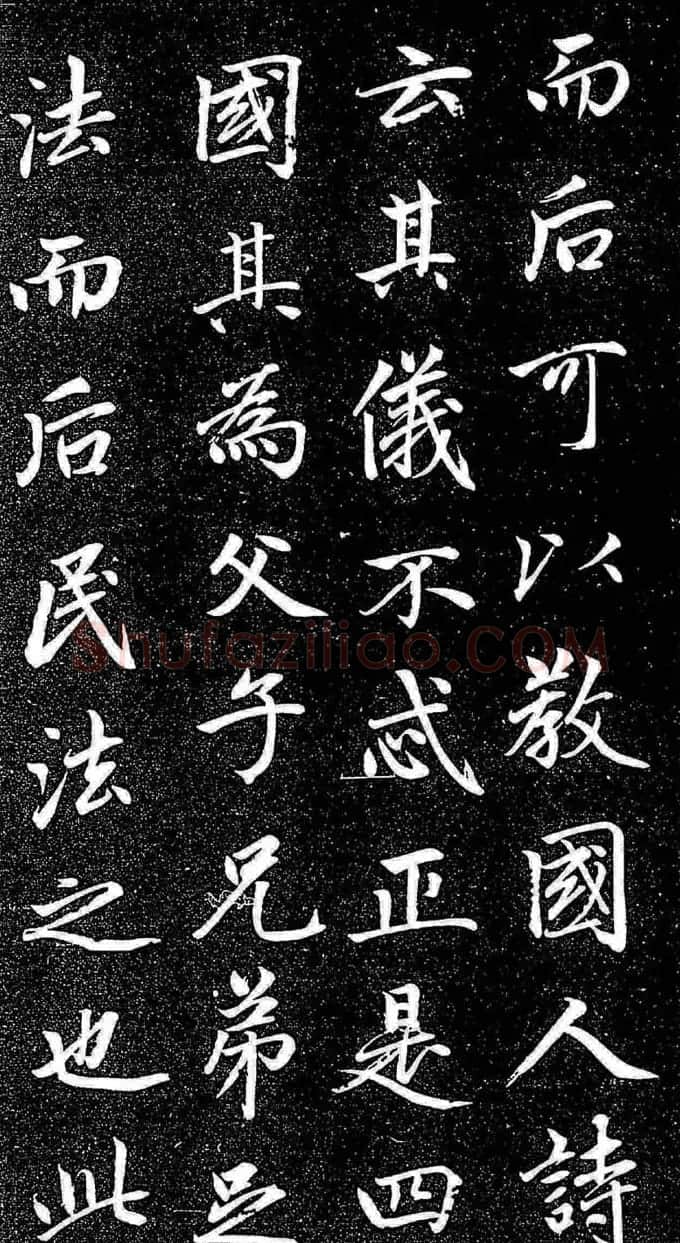 而后可以教國人詩
云其儀不忒正是四
國其為父子兄弟足
法而后民法之也此
Shufaziliao.COM